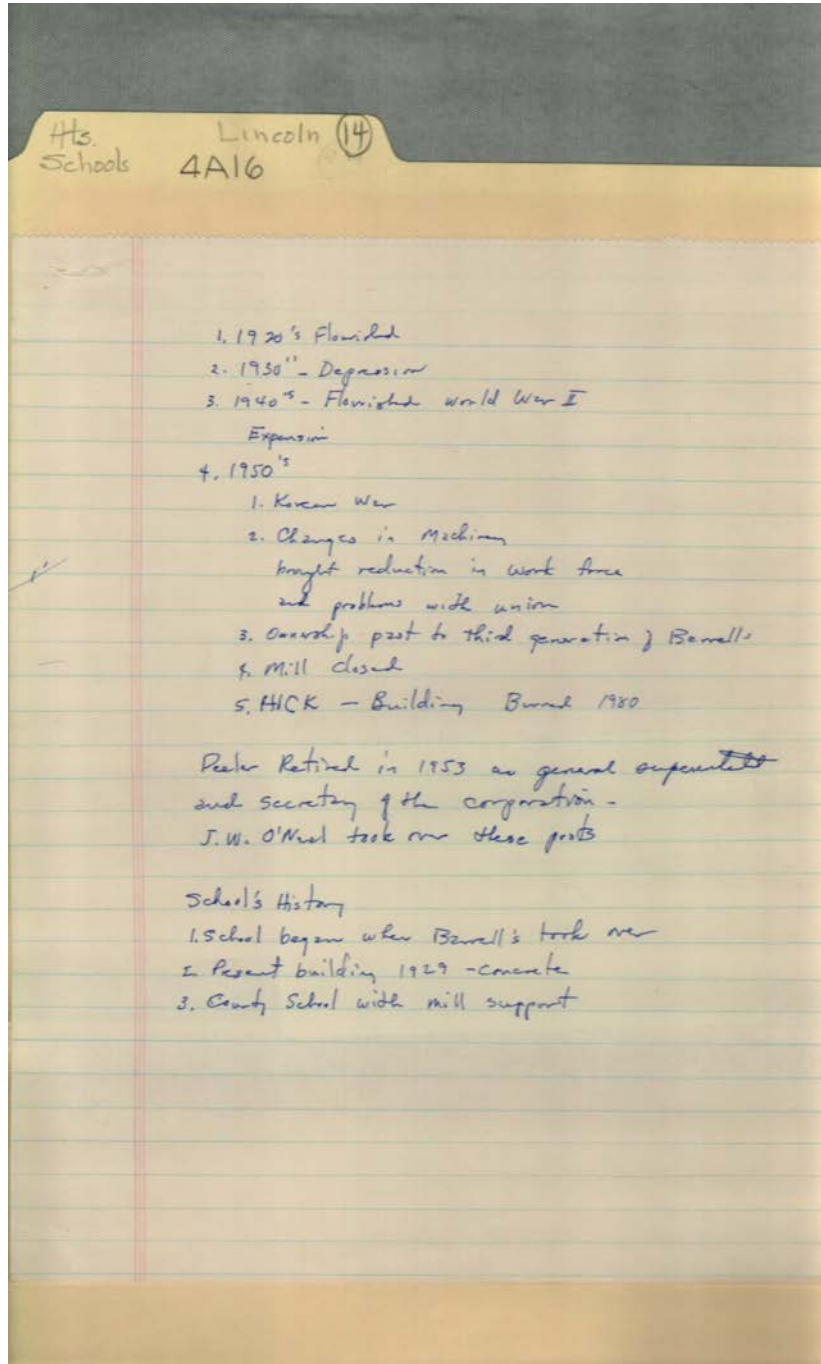 Hts. Lincoln 14
Schools 4A16
1. 1920's Flourished
2. 1930's - Depression
3. 1940's - Flourished World War II
Expansion
4. 1950's
1. Korean War
2. Changes in Machinery
brought reduction in work force
and problems with union
3. Ownership past to third generation of Barrells
4. Mill closed
5. HICK - Building Burned 1980
Retired in 1953 as general
and secretary of the corporation -
J.W. O'Neal took over these posts
School's History
1. School began when Barrell's took over
2. Present building 1929 - concrete
3. County School with mill support